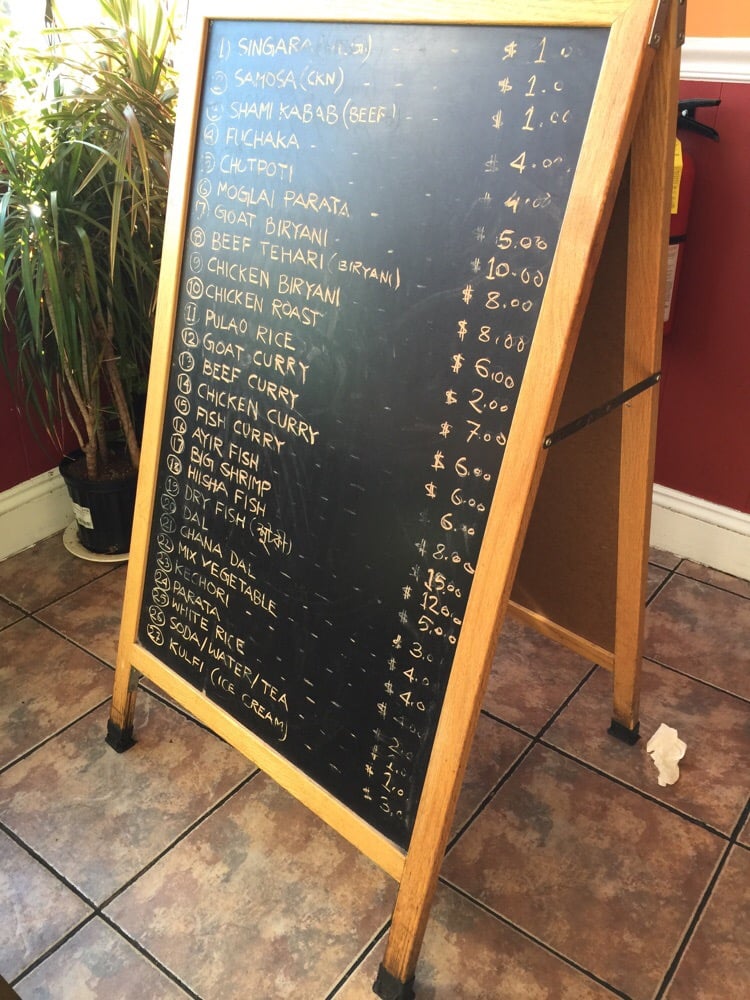 1) SINGARA $ 1.0
2 SAMOSA (CKN) $ 1.0
3 SHAMI KABAB (BEEF) $ 1.00
4 FUCHAKA $ 4.00
5 CHOTPOTI $ 4.00
6 MOGLAI PARATA $ 5.00
7 GOAT BIRYANI $ 10.00
8 BEEF TEHARI (BIRYANI) $ 8.00
9 CHICKEN BIRYANI $ 8.00
10 CHICKEN ROAST $ 6.00
11 PULAO RICE $ 2.00
12 GOAT CURRY $ 7.00
13 BEEF CURRY $ 6.00
14 CHICKEN CURRY $ 6.00
15 FISH CURRY 6.00
16 AYIR FISH $ 8.00
17 BIG SHRIMP 15.00
18 HilSHA FISH $ 12.00
19 DRY FISH (শুটকী) $ 5.00
20 DAL $ 3.0
21 CHANA DAL $ 4.0
22 MIX VEGETABLE $ 4.0
23 KECHORI $ 4.00
24 PARATA $ 2.0
25 WHITE RICE $ 2.0
26 SODA/WATER/TEA $ 2.0
27 KULFI (ICE CREAM) $ 3.0